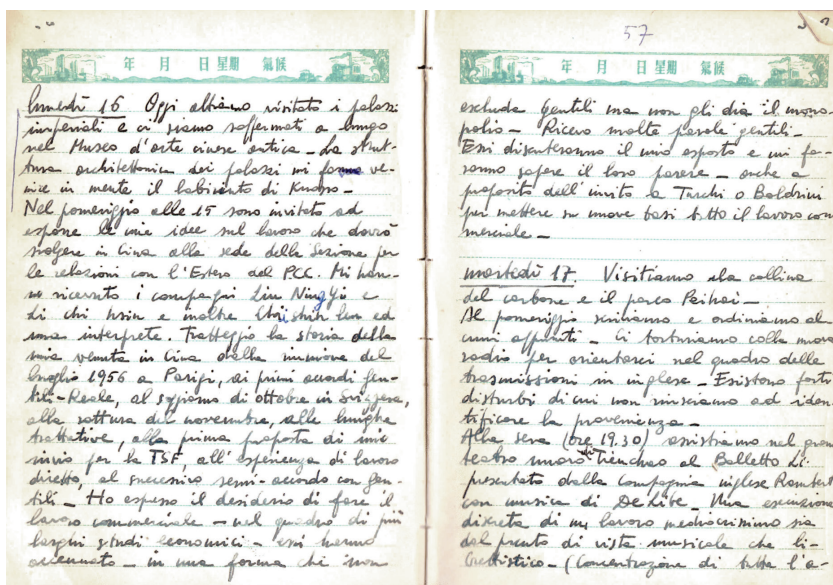 年 月 日 星期 氣候
lunedì 16 Oggi abbiamo visitato i palazzi
imperiali e ci siamo soffermati a lungo
nel Museo d'arte cinese antica - La strut-
tura architettonica dei palazzi mi fanno ve-
nire in mente il labirinto di Knosso -
Nel pomeriggio alle 15 sono invitato ad
esporre le mie idee sul lavoro che dovrò
svolgere in Cina alla sede della Sezione per
le relazioni con l'Estero del PCC. Mi han-
no ricevuto i compagni Liu Ning Yi e
Li chi hsin e inoltre shih lun ed
una interprete. Tratteggio la storia della
mia venuta in Cina dalla riunione del
luglio 1956 a Parigi, ai primi accordi Gen-
tili-Reale, al soggiorno di ottobre in Svizzera,
alla rottura del novembre, alle lunghe
trattative, alla prima proposta di mio
invio per la TSF, all'esperienza di lavoro
diretto, al successivo semi-accordo con Gen-
tili - Ho espresso il desiderio di fare il
lavoro commerciale - nel quadro di più
larghi studi economici - essi hanno
accennato - in una forma che non
57
年 月 日 星期 氣候
escluda Gentili ma non gli dia il mono-
polio - Ricevo molte parole gentili -
Essi discuteranno il mio esposto e mi fa-
ranno sapere il loro parere - anche a
proposito dell'invito a Turchi o Boldrini
per mettere su nuove basi tutto il lavoro com
merciale -
martedì 17. Visitiamo la collina
del carbone e il parco Peihai -
Al pomeriggio scriviamo e ordiniamo al
cuni appunti - Ci torturiamo colla nuova
radio per orientarci nel quadro delle
trasmissioni in inglese - Esistono forti
disturbi di cui non riusciamo ad iden
tificare la provenienza -
Alla sera (ore 19.30) assistiamo nel gran
teatro nuovo di Tienchao al Balletto di
presentato dalla compagnia inglese Rambert
con musica di De Libe - Una esecuzione
discreta di un lavoro mediocrissimo sia
dal punto di vista musicale che li-
brettistico - (Concentrazione di tutta l'a-